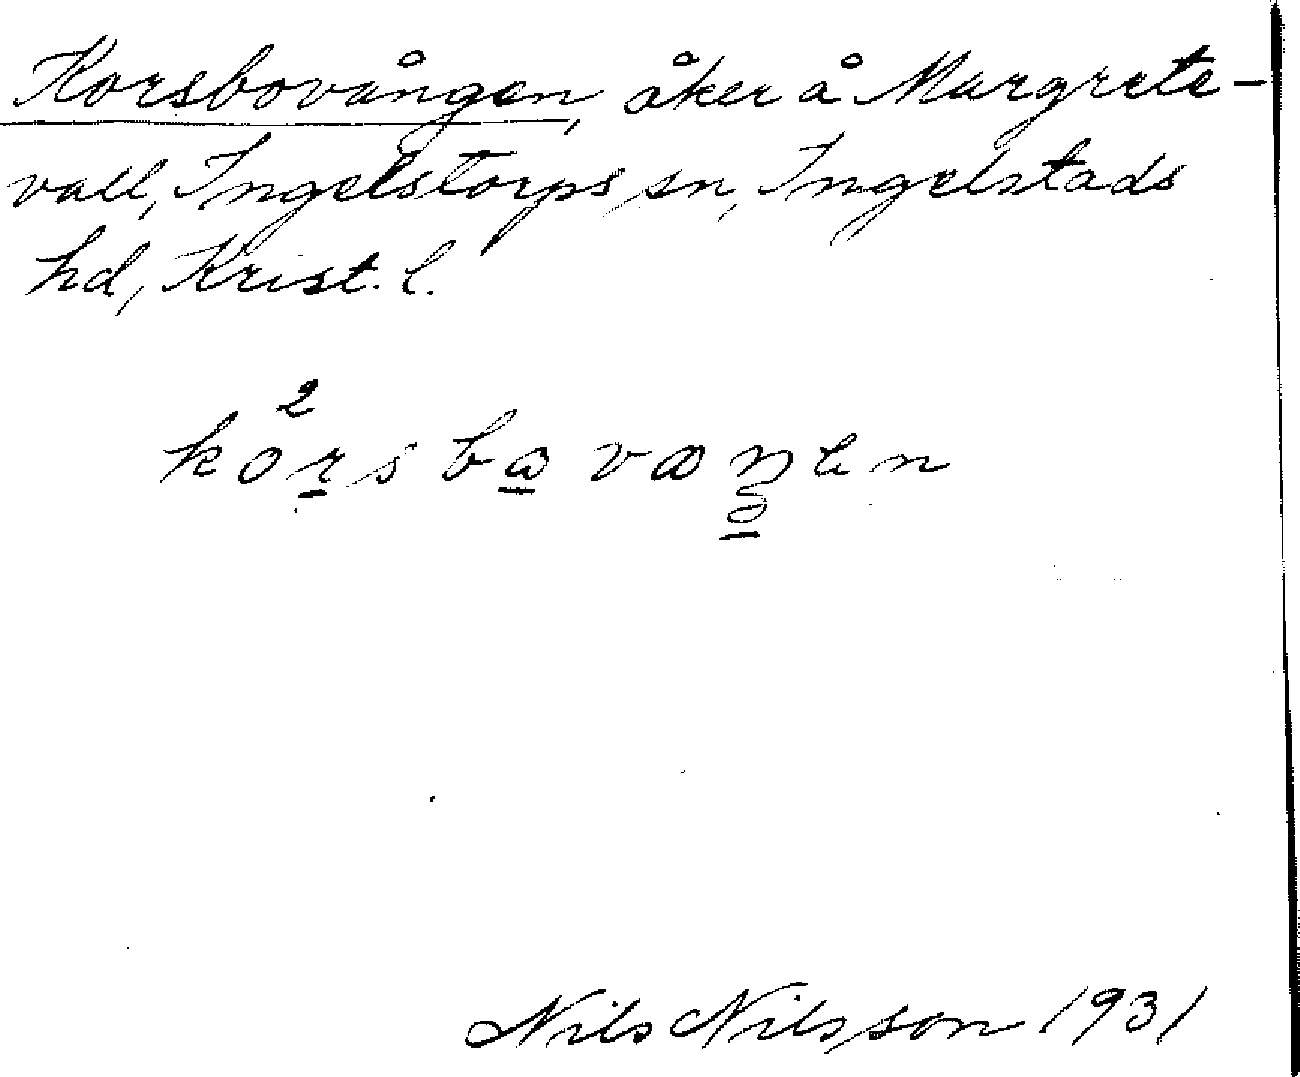 Korsbovången, åker å Margrete-
vall, Ingelstorps sn, Ingelstads
hd, Krist. l.
2
Nils Nilsson 1931